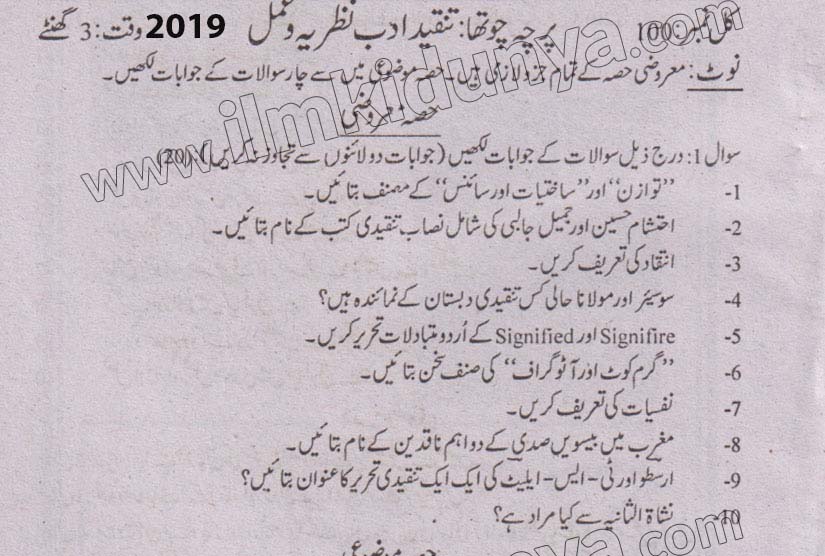 کل نمبر: 100 پرچہ چوتھا: تنقید ادب نظریہ و عمل 2019 وقت: 3 گھنٹے
نوٹ: معروضی حصہ کے تمام جزو لازمی ہیں۔ حصہ موضوعی میں سے چار سوالات کے جوابات لکھیں۔
حصہ معروضی
سوال 1: درج ذیل سوالات کے جوابات لکھیں (جوابات دو لائنوں سے تجاوز نہ کریں)۔ (20)
1- ”توازن“ اور ”ساختیات اور سائنس“ کے مصنف بتائیں۔
2- احتشام حسین اور جمیل جالبی کی شامل نصاب تنقیدی کتب کے نام بتائیں۔
3- انتقاد کی تعریف کریں۔
4- سوسیئر اور مولانا حالی کس تنقیدی دبستان کے نمائندہ ہیں؟
5- Signifire اور Signified کے اُردو متبادلات تحریر کریں۔
6- ”گرم کوٹ اور آٹو گراف“ کی صنف سخن بتائیں۔
7- نفسیات کی تعریف کریں۔
8- مغرب میں بیسویں صدی کے دو اہم ناقدین کے نام بتائیں۔
9- ارسطو اور ٹی-ایس-ایلیٹ کی ایک ایک تنقیدی تحریر کا عنوان بتائیں؟
10- نشاۃ الثانیہ سے کیا مراد ہے؟
حصہ موضوعی
www.ilmkidunya.com